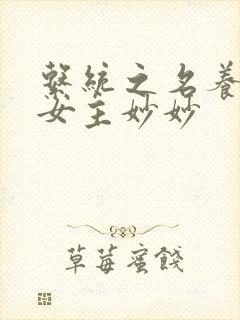 繫统之名養
女主妙妙
草莓蜜餞